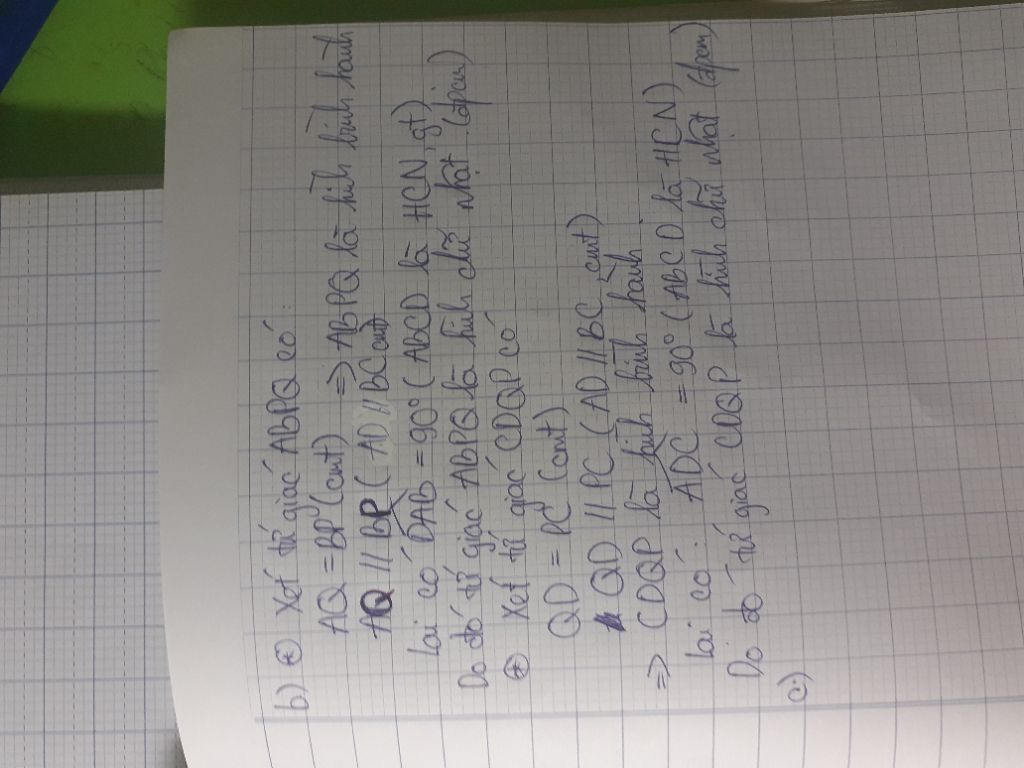 b) ⊕ Xét tứ giác ABPQ có:
AQ = BP (cmt) => ABPQ là hình bình hành
AQ // BP ( AD // BC cmt)
Lại có DAB = 90° ( ABCD là HCN, gt)
Do đó tứ giác ABPQ là hình chữ nhật (đpcm)
⊕ Xét tứ giác CDQP có
QD = PC (cmt)
QD // PC ( AD // BC cmt)
=> CDQP là hình bình hành.
Lại có: ADC = 90° ( ABCD là HCN)
Do đó tứ giác CDQP là hình chữ nhật (đpcm)
c)